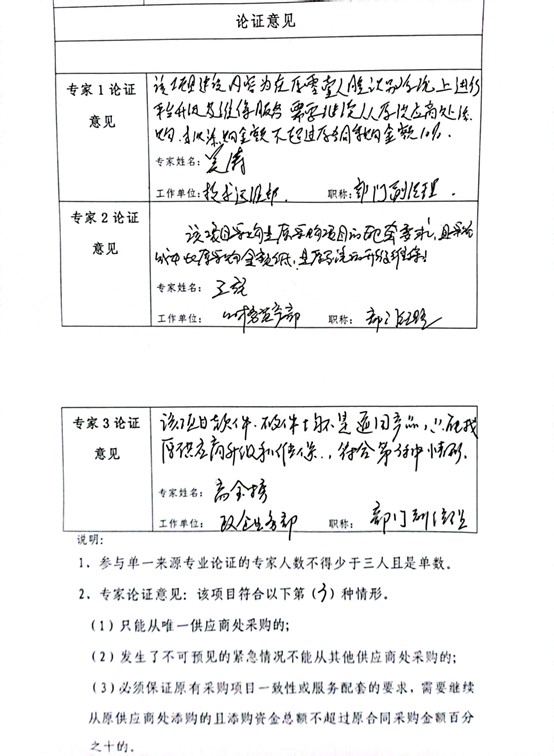 论证意见
专家1论证意见
该项目建设内容为在原零壹人脸识别系统上进行
平台升级及维保服务 需要继续从原供应商处添
购.且添购金额不超过原合同采购金额10%.
专家姓名:
工作单位: 技术运维部 职称: 部门副经理.
专家2论证意见
该项目采购是原采购项目的配套要求,且采购
金额低,是原系统的升级维保!
专家姓名: 王
工作单位: 财务资产部 职称: 部门经理
专家3论证意见
该项目软件.硬件均不是通用产品,只能找
原供应商升级和维保.,符合第3种情形.
专家姓名: 高全
工作单位: 政企业务部 职称: 部门副经理
说明:
1、参与单一来源专业论证的专家人数不得少于三人且是单数。
2、专家论证意见:该项目符合以下第(3)种情形。
(1)只能从唯一供应商处采购的;
(2)发生了不可预见的紧急情况不能从其他供应商处采购的;
(3)必须保证原有采购项目一致性或服务配套的要求,需要继续
从原供应商处添购的且添购资金总额不超过原合同采购金额百分
之十的.